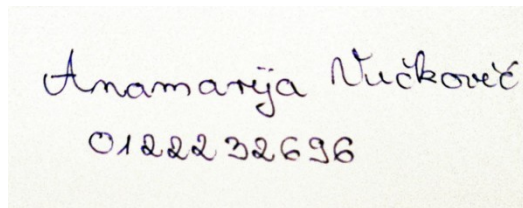 Anamarija Vučković
0122232696